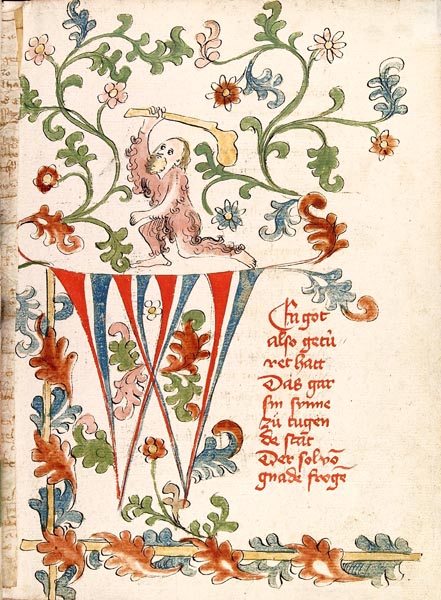 En got
also getü
ret hatt
Das gar
sin synne
zü tugen
de stat
Der sol vō
gnade frogē